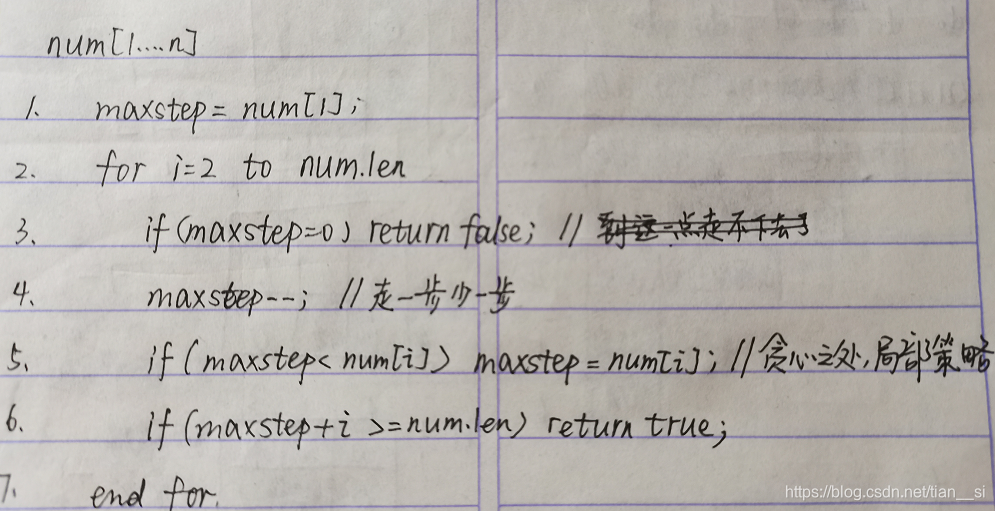 num[1....n]
1. maxstep = num[1];
2. for i=2 to num.len
3. if(maxstep=0) return false; // 到这一点走不下去了
4. maxstep--; // 走一步少一步
5. if(maxstep<num[i]) maxstep=num[i]; // 贪心之处,局部策略
6. if(maxstep+i >=num.len) return true;
7. end for.
https://blog.csdn.net/tian__si